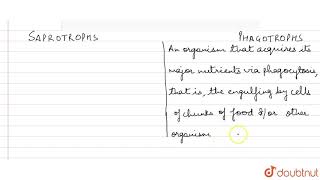 SAPROTROPHS PHAGOTROPHS
An organism that acquires its
major nutrients via phagocytosis,
that is, the engulfing by cells
of chunks of food &/or other
organism
doubtnut